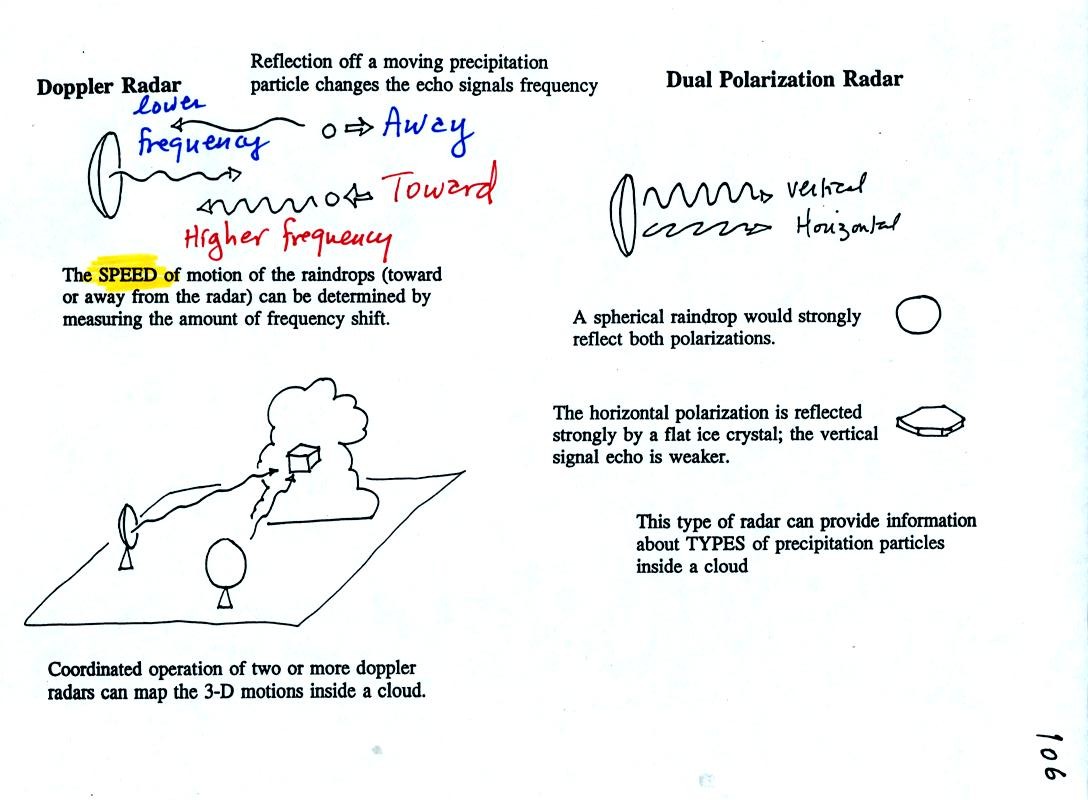 Doppler Radar
Reflection off a moving precipitation
particle changes the echo signals frequency
lower
frequency
Away
Toward
Higher frequency
The SPEED of motion of the raindrops (toward
or away from the radar) can be determined by
measuring the amount of frequency shift.
Coordinated operation of two or more doppler
radars can map the 3-D motions inside a cloud.
Dual Polarization Radar
vertical
Horizontal
A spherical raindrop would strongly
reflect both polarizations.
The horizontal polarization is reflected
strongly by a flat ice crystal; the vertical
signal echo is weaker.
This type of radar can provide information
about TYPES of precipitation particles
inside a cloud
106